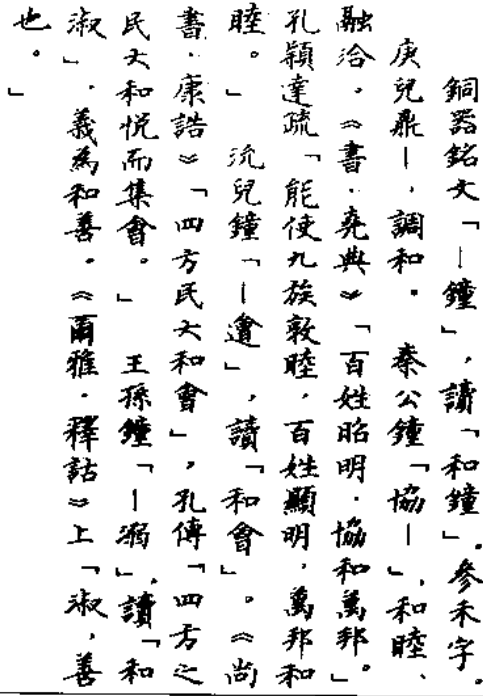 銅器銘文「｜鐘」，讀「和鐘」。參禾字。
庚兒鼎｜，調和。　秦公鐘「協｜」，和睦、
融洽。《書·堯典》「百姓昭明，協和萬邦。」
孔穎達疏「能使九族敦睦，百姓顯明，萬邦和
睦。」　沇兒鐘「｜會」，讀「和會」。《尚
書·康誥》「四方民大和會」，孔傳「四方之
民大和悅而集會。」　王孫鐘「｜溺」，讀「和
淑」，義為和善。《爾雅·釋詁》上「淑，善
也。」